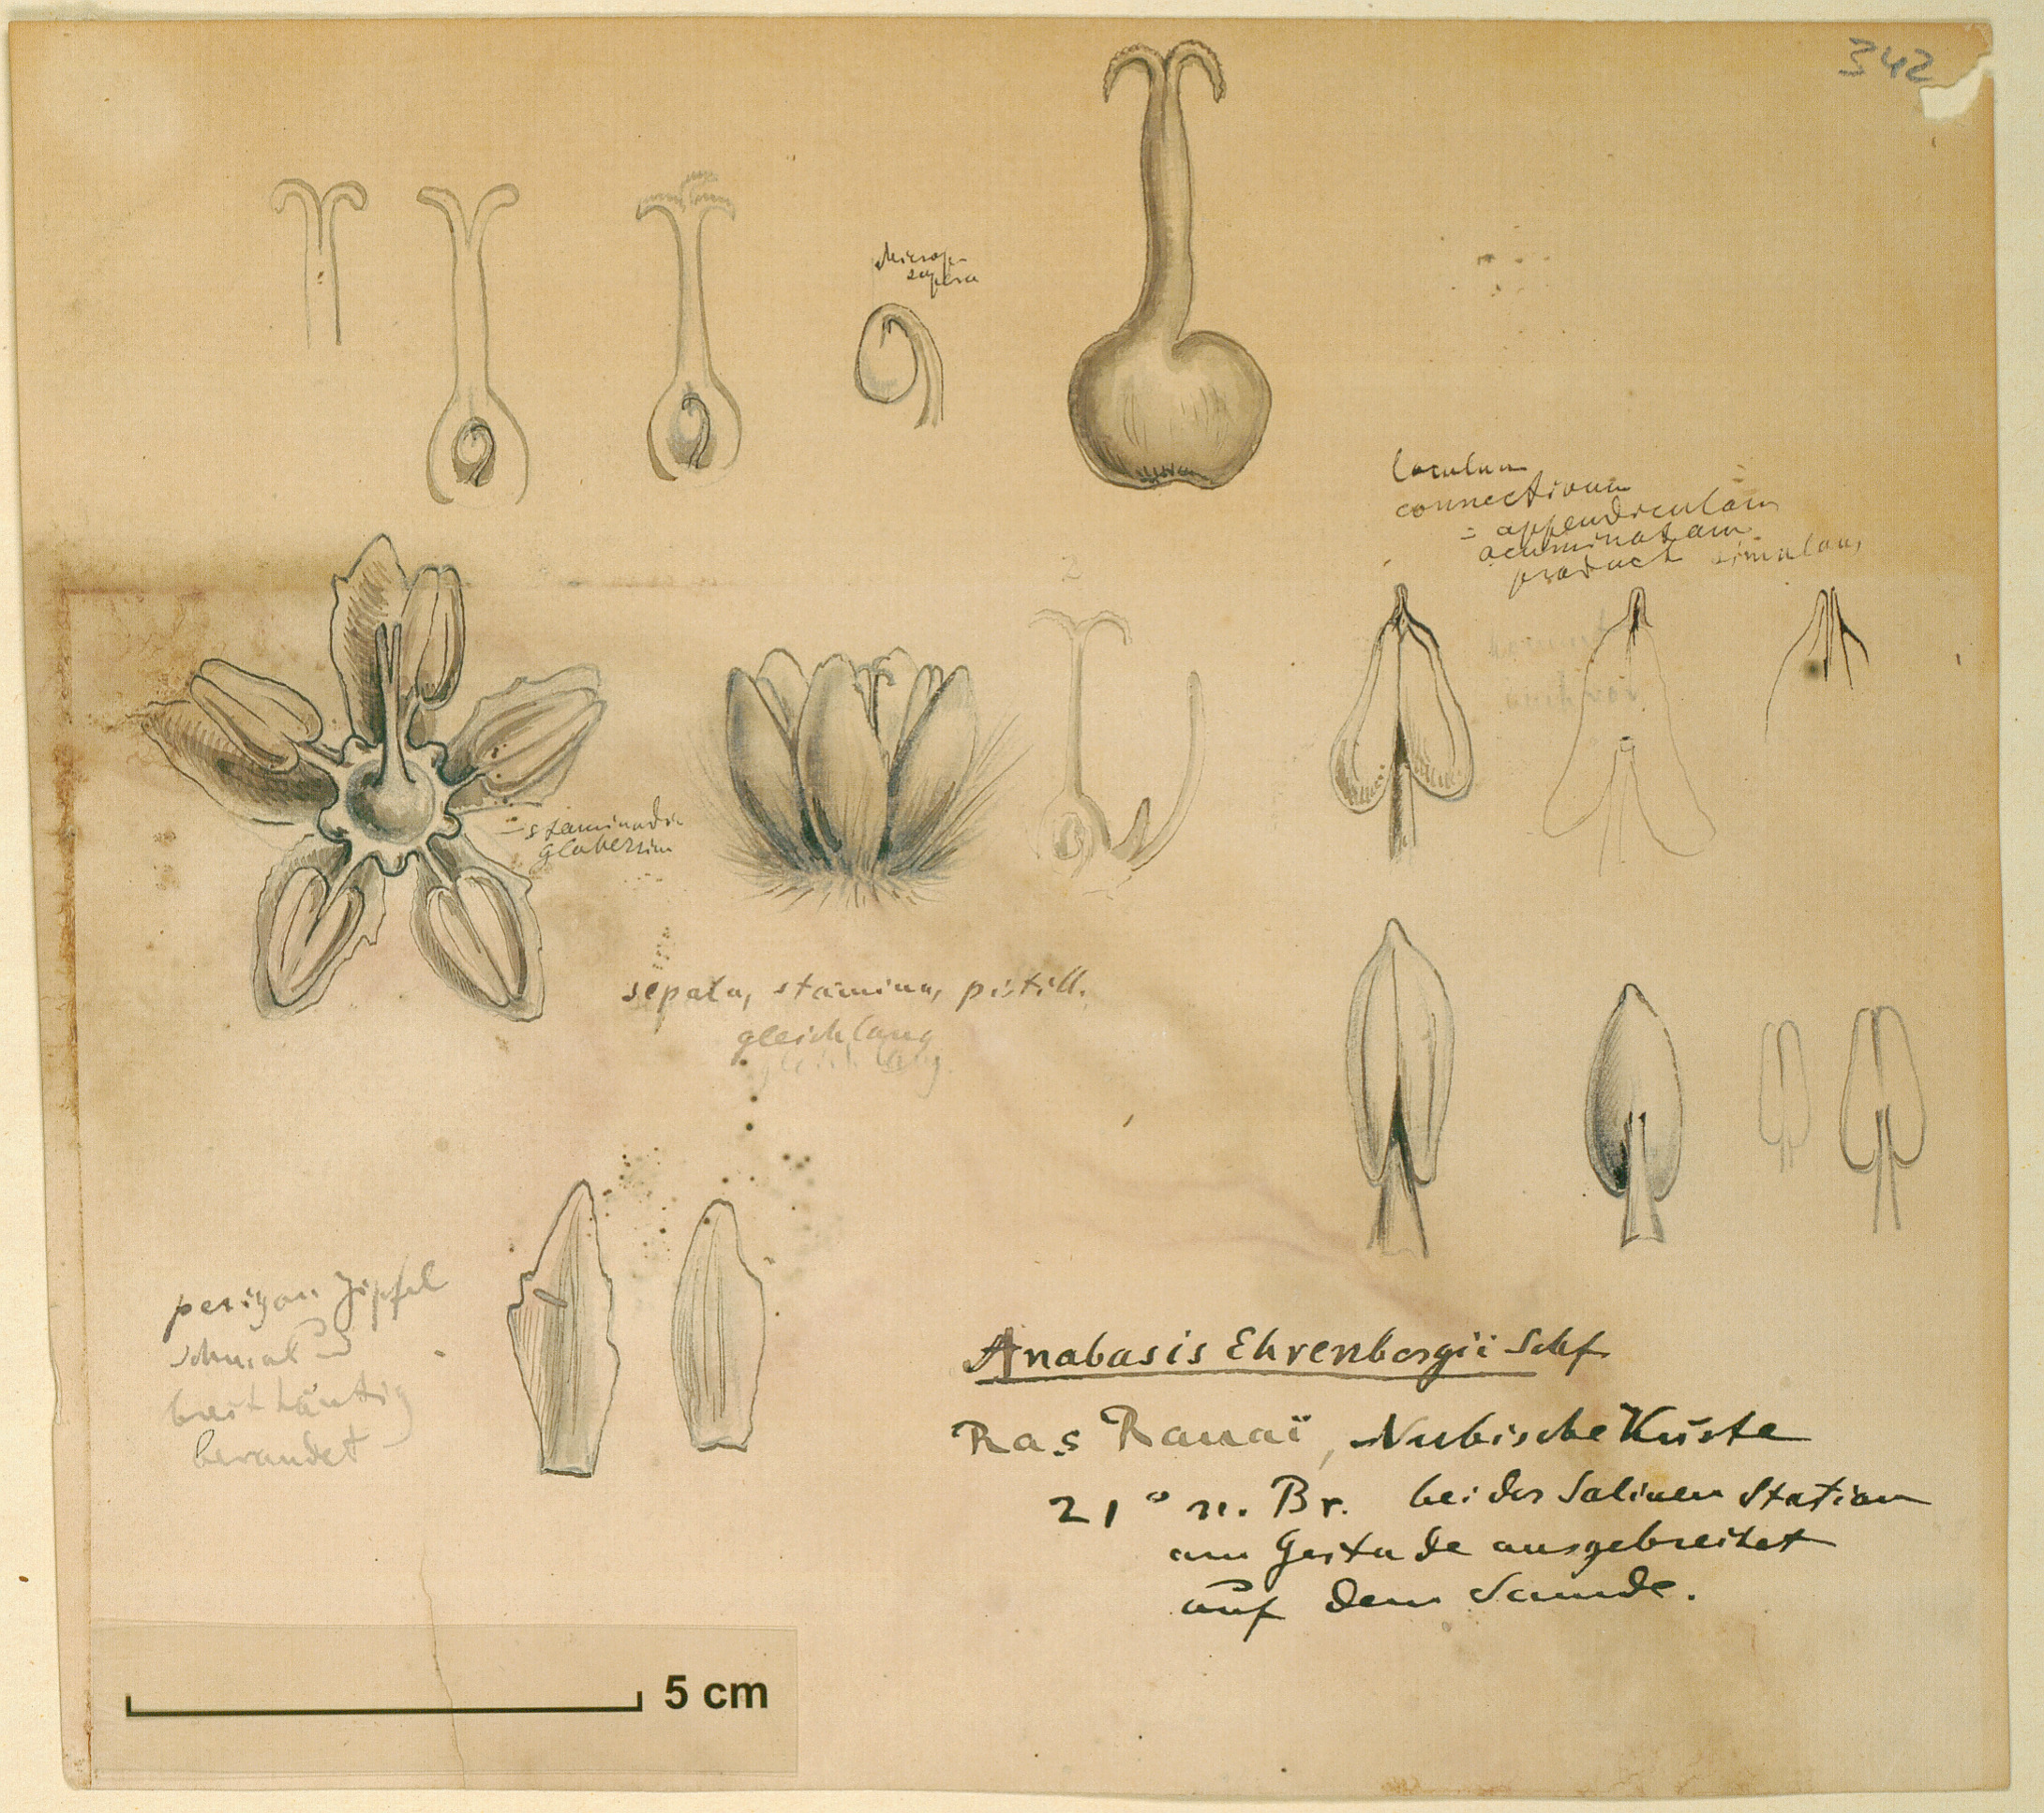 342
Microp.
supera
loculum
connectivum
= appendiculam
acuminatam
product simulans
2
– staminodia
glaberrim
sepala, stamina, pistill.
gleichlang
gleichlang
perigon Zipfel
schmal u
breit häutig
berandet
Anabasis Ehrenbergii Schf
Ras Rauaï, Nubische Küste
21° n. Br. bei der Salinen Station
am Gestade ausgebreitet
auf dem Sande.
5 cm